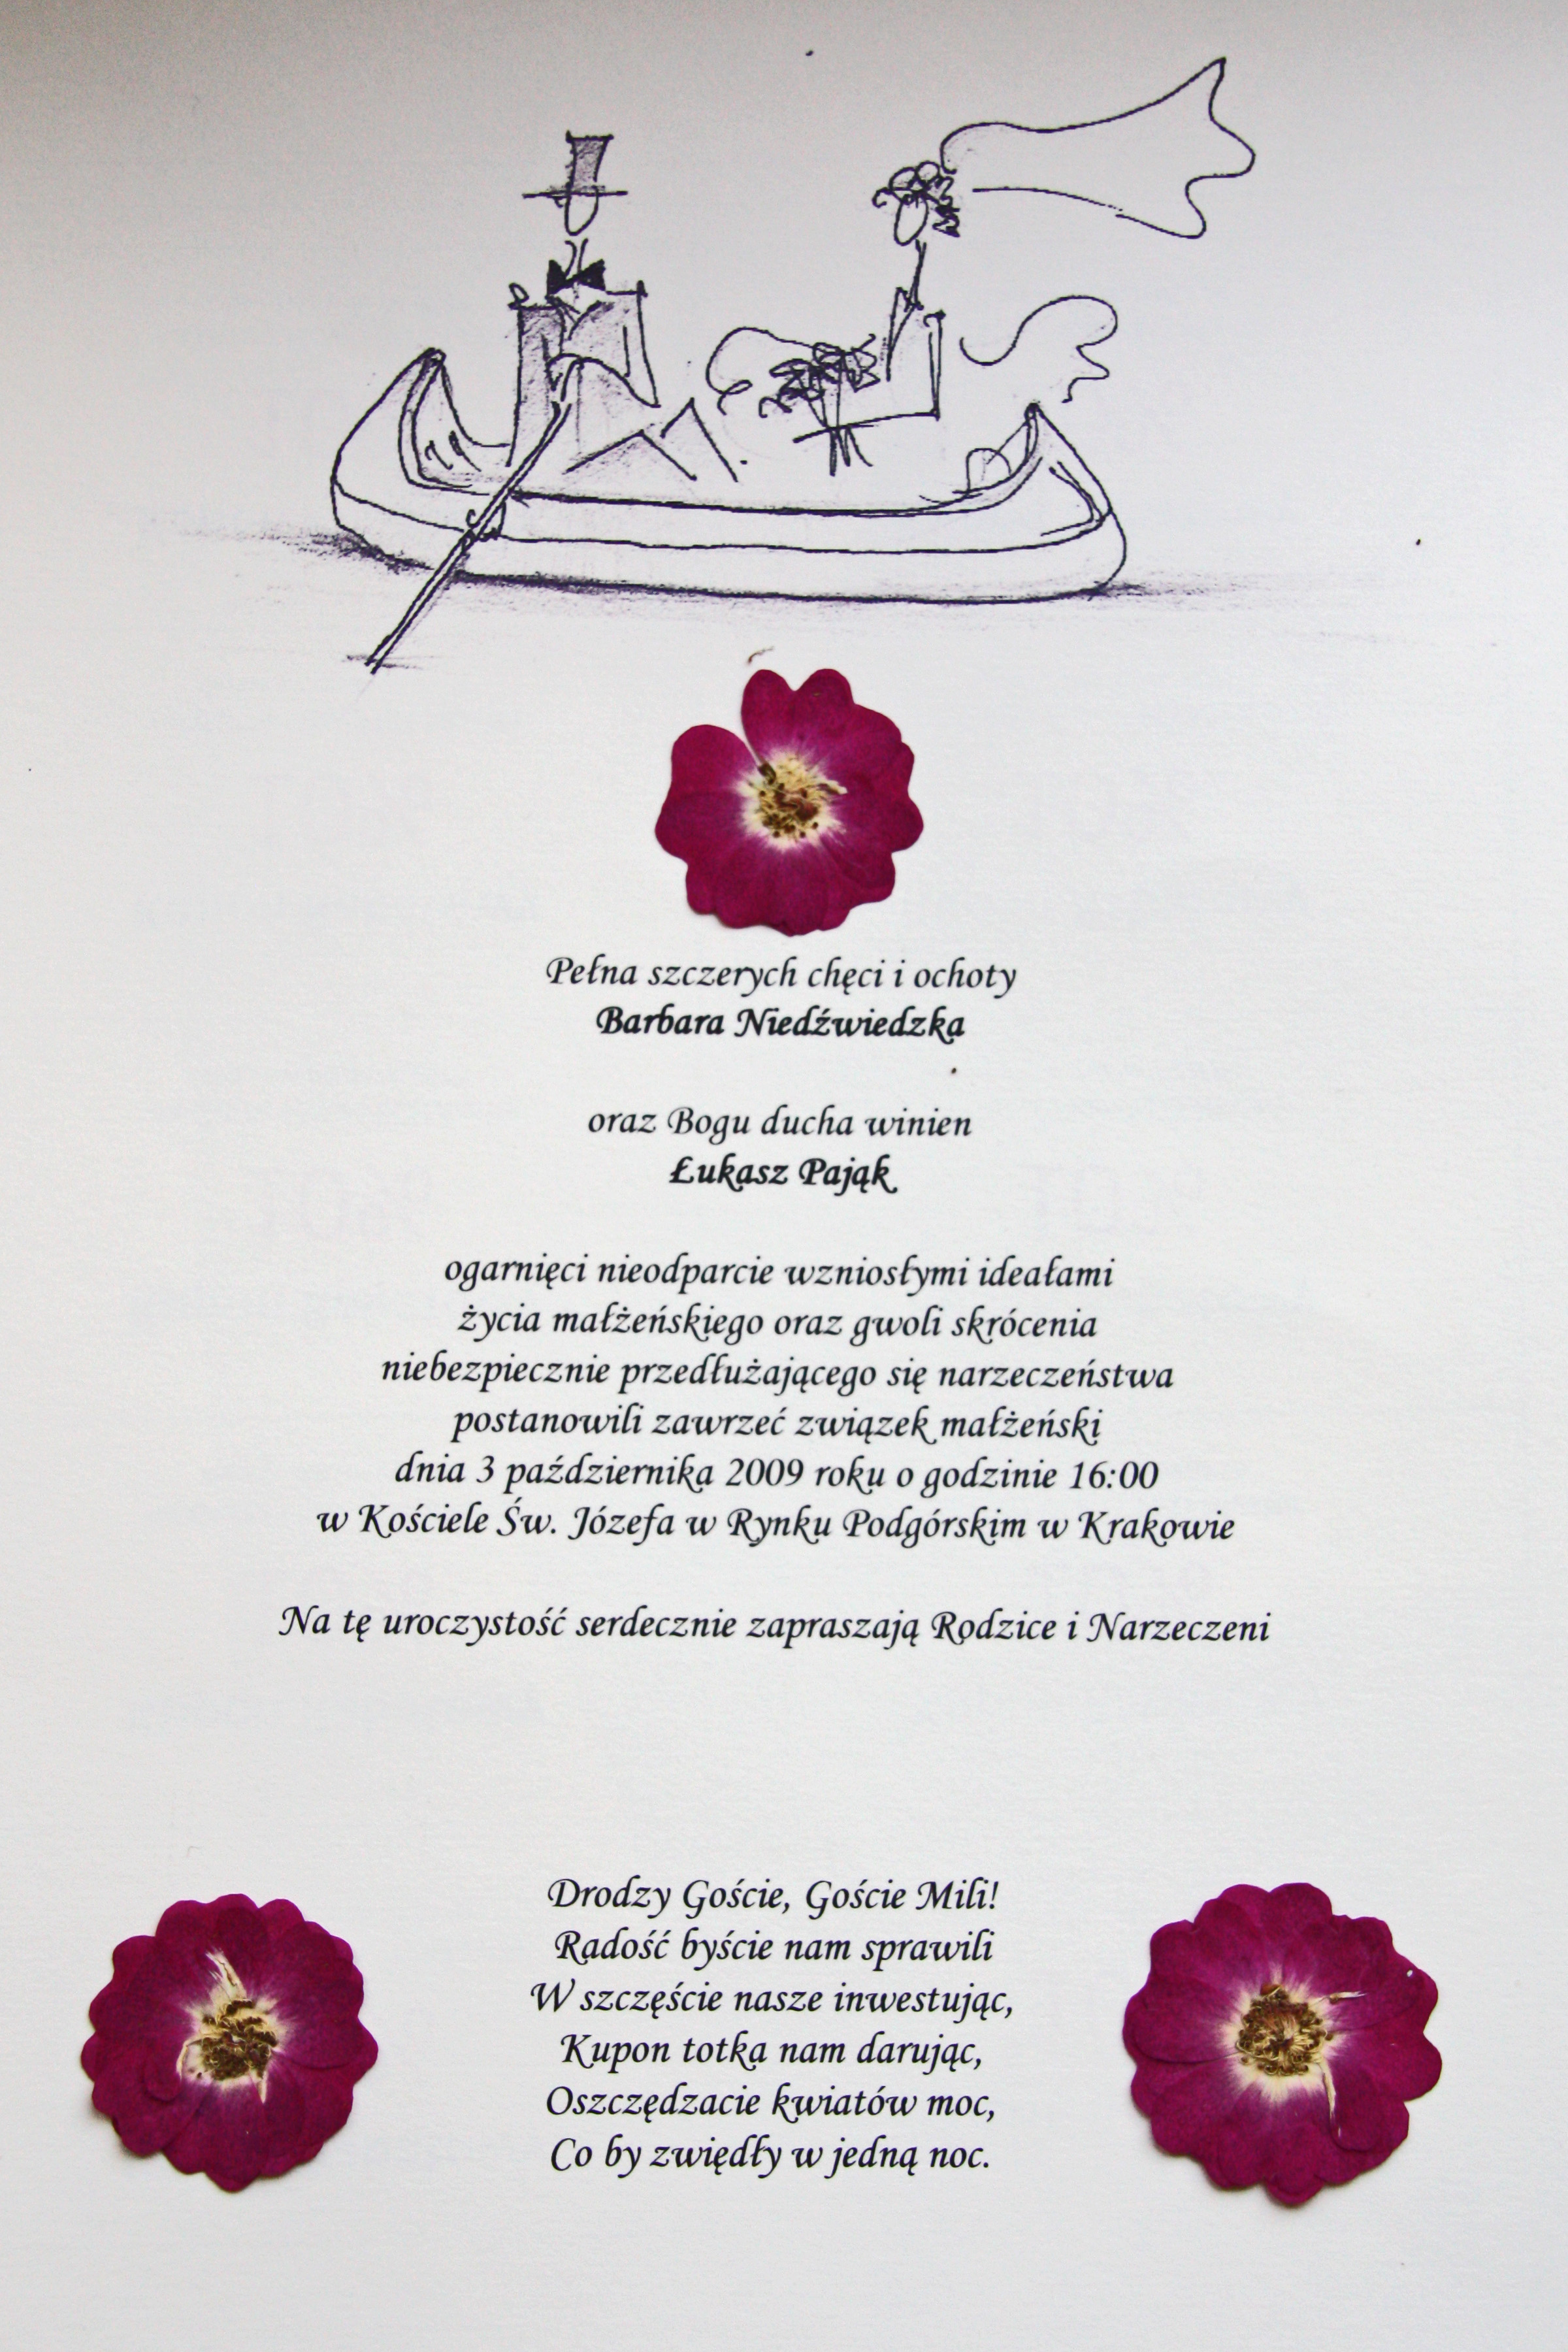 Pełna szczerych chęci i ochoty
Barbara Niedźwiedzka
oraz Bogu ducha winien
Łukasz Pająk
ogarnięci nieodparcie wzniosłymi ideałami
życia małżeńskiego oraz gwoli skrócenia
niebezpiecznie przedłużającego się narzeczeństwa
postanowili zawrzeć związek małżeński
dnia 3 października 2009 roku o godzinie 16:00
w Kościele Św. Józefa w Rynku Podgórskim w Krakowie
Na tę uroczystość serdecznie zapraszają Rodzice i Narzeczeni
Drodzy Goście, Goście Mili!
Radość byście nam sprawili
W szczęście nasze inwestując,
Kupon totka nam darując,
Oszczędzacie kwiatów moc,
Co by zwiędły w jedną noc.